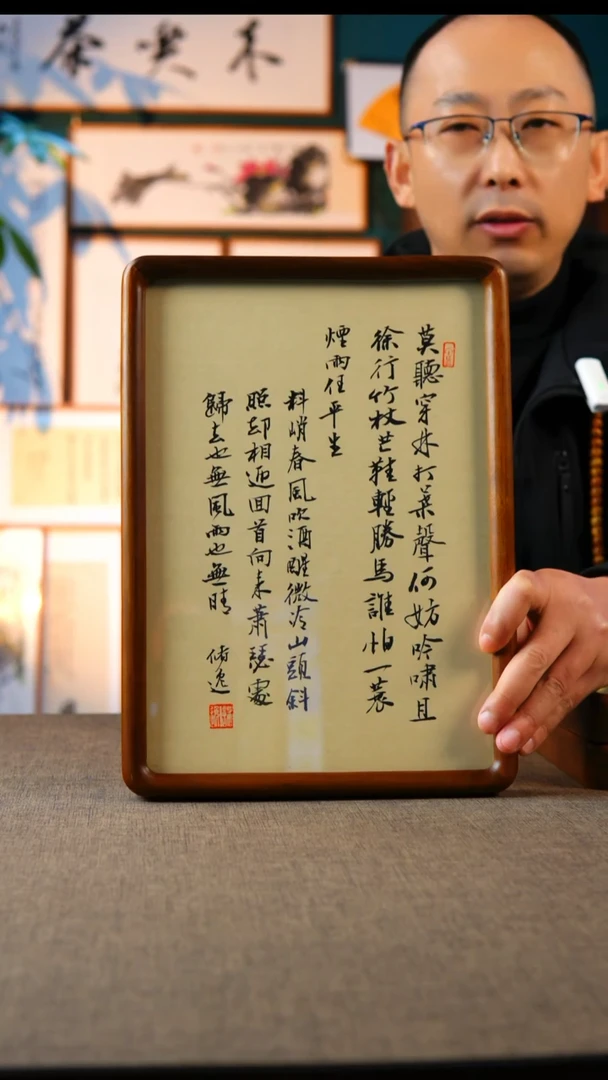 莫聽穿林打葉聲何妨吟嘯且
徐行竹杖芒鞋輕勝馬誰怕一蓑
煙雨任平生
料峭春風吹酒醒微冷山頭斜
照却相迎回首向来蕭瑟處
歸去也無風雨也無晴